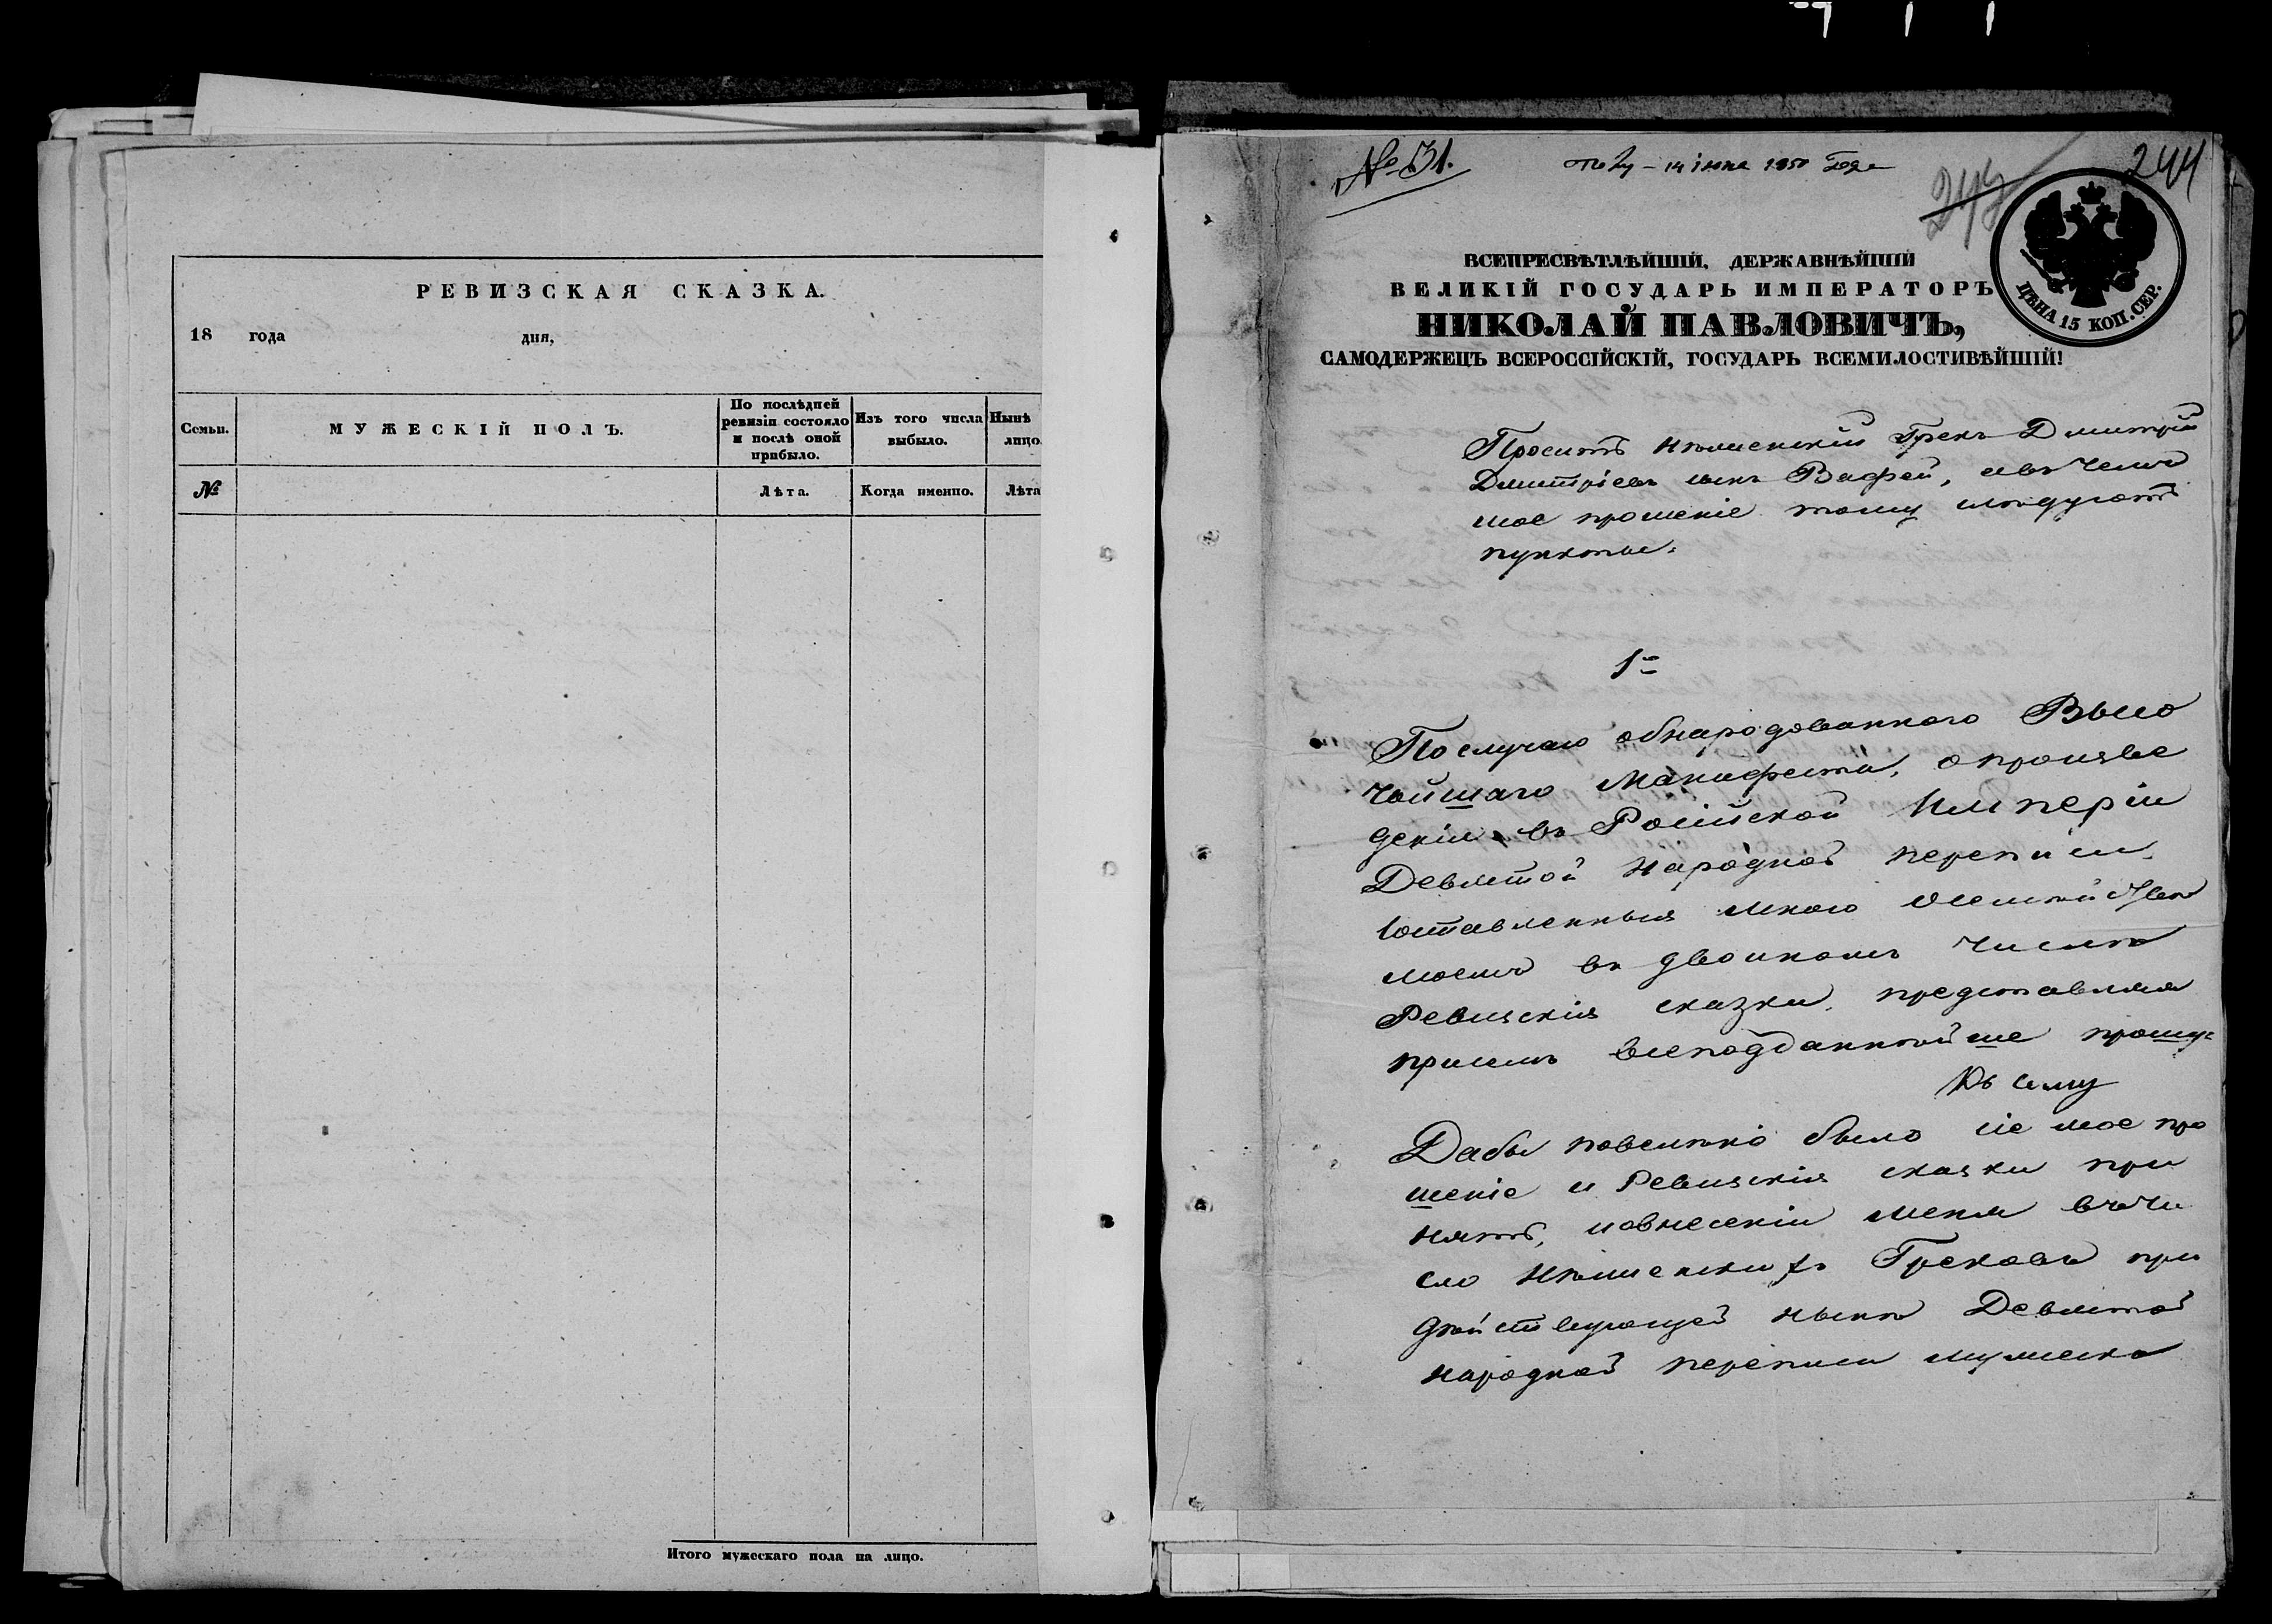 РЕВИЗСКАЯ СКАЗКА.
18 года дня,
Семьи.
МУЖЕСКІЙ ПОЛЪ.
По послѣдней
ревизіи состояло
и послѣ оной
прибыло.
Изъ того числа
выбыло.
Нынѣ
лицо.
№
Лѣта.
Когда именно.
Лѣта
Итого мужескаго пола на лицо.
№ 31.
14 іюня 1850 года
243
244
ЦѢНА 15 КОП. СЕР.
ВСЕПРЕСВѢТЛѢЙШІЙ, ДЕРЖАВНѢЙШІЙ
ВЕЛИКІЙ ГОСУДАРЬ ИМПЕРАТОРЪ
НИКОЛАЙ ПАВЛОВИЧЪ,
САМОДЕРЖЕЦЪ ВСЕРОССІЙСКІЙ, ГОСУДАРЬ ВСЕМИЛОСТИВѢЙШІЙ!
Проситъ нѣжинскій Грекъ Дмитрій
Дмитріевъ сынъ Вафей, а въ чемъ
мое прошеніе тому слѣдуютъ
пункты.
1е
По случаю обнародованнаго Высо
чайшаго Манифеста, о произве
деніи въ Російской Имперіи
Девятой народной переписи,
составленныя мною о семействѣ
моемъ въ двойномъ числѣ
Ревизскія сказки, представляя
присемъ всеподданнѣйше прошу:
Къ сему
Дабы повелѣно было сіе мое про
шеніе и Ревизскія сказки при
нять, и о внесеніи меня въ чи
сло Нѣжинскихъ Грековъ при
дѣйствующей нынѣ Девятой
народной переписи мужеска